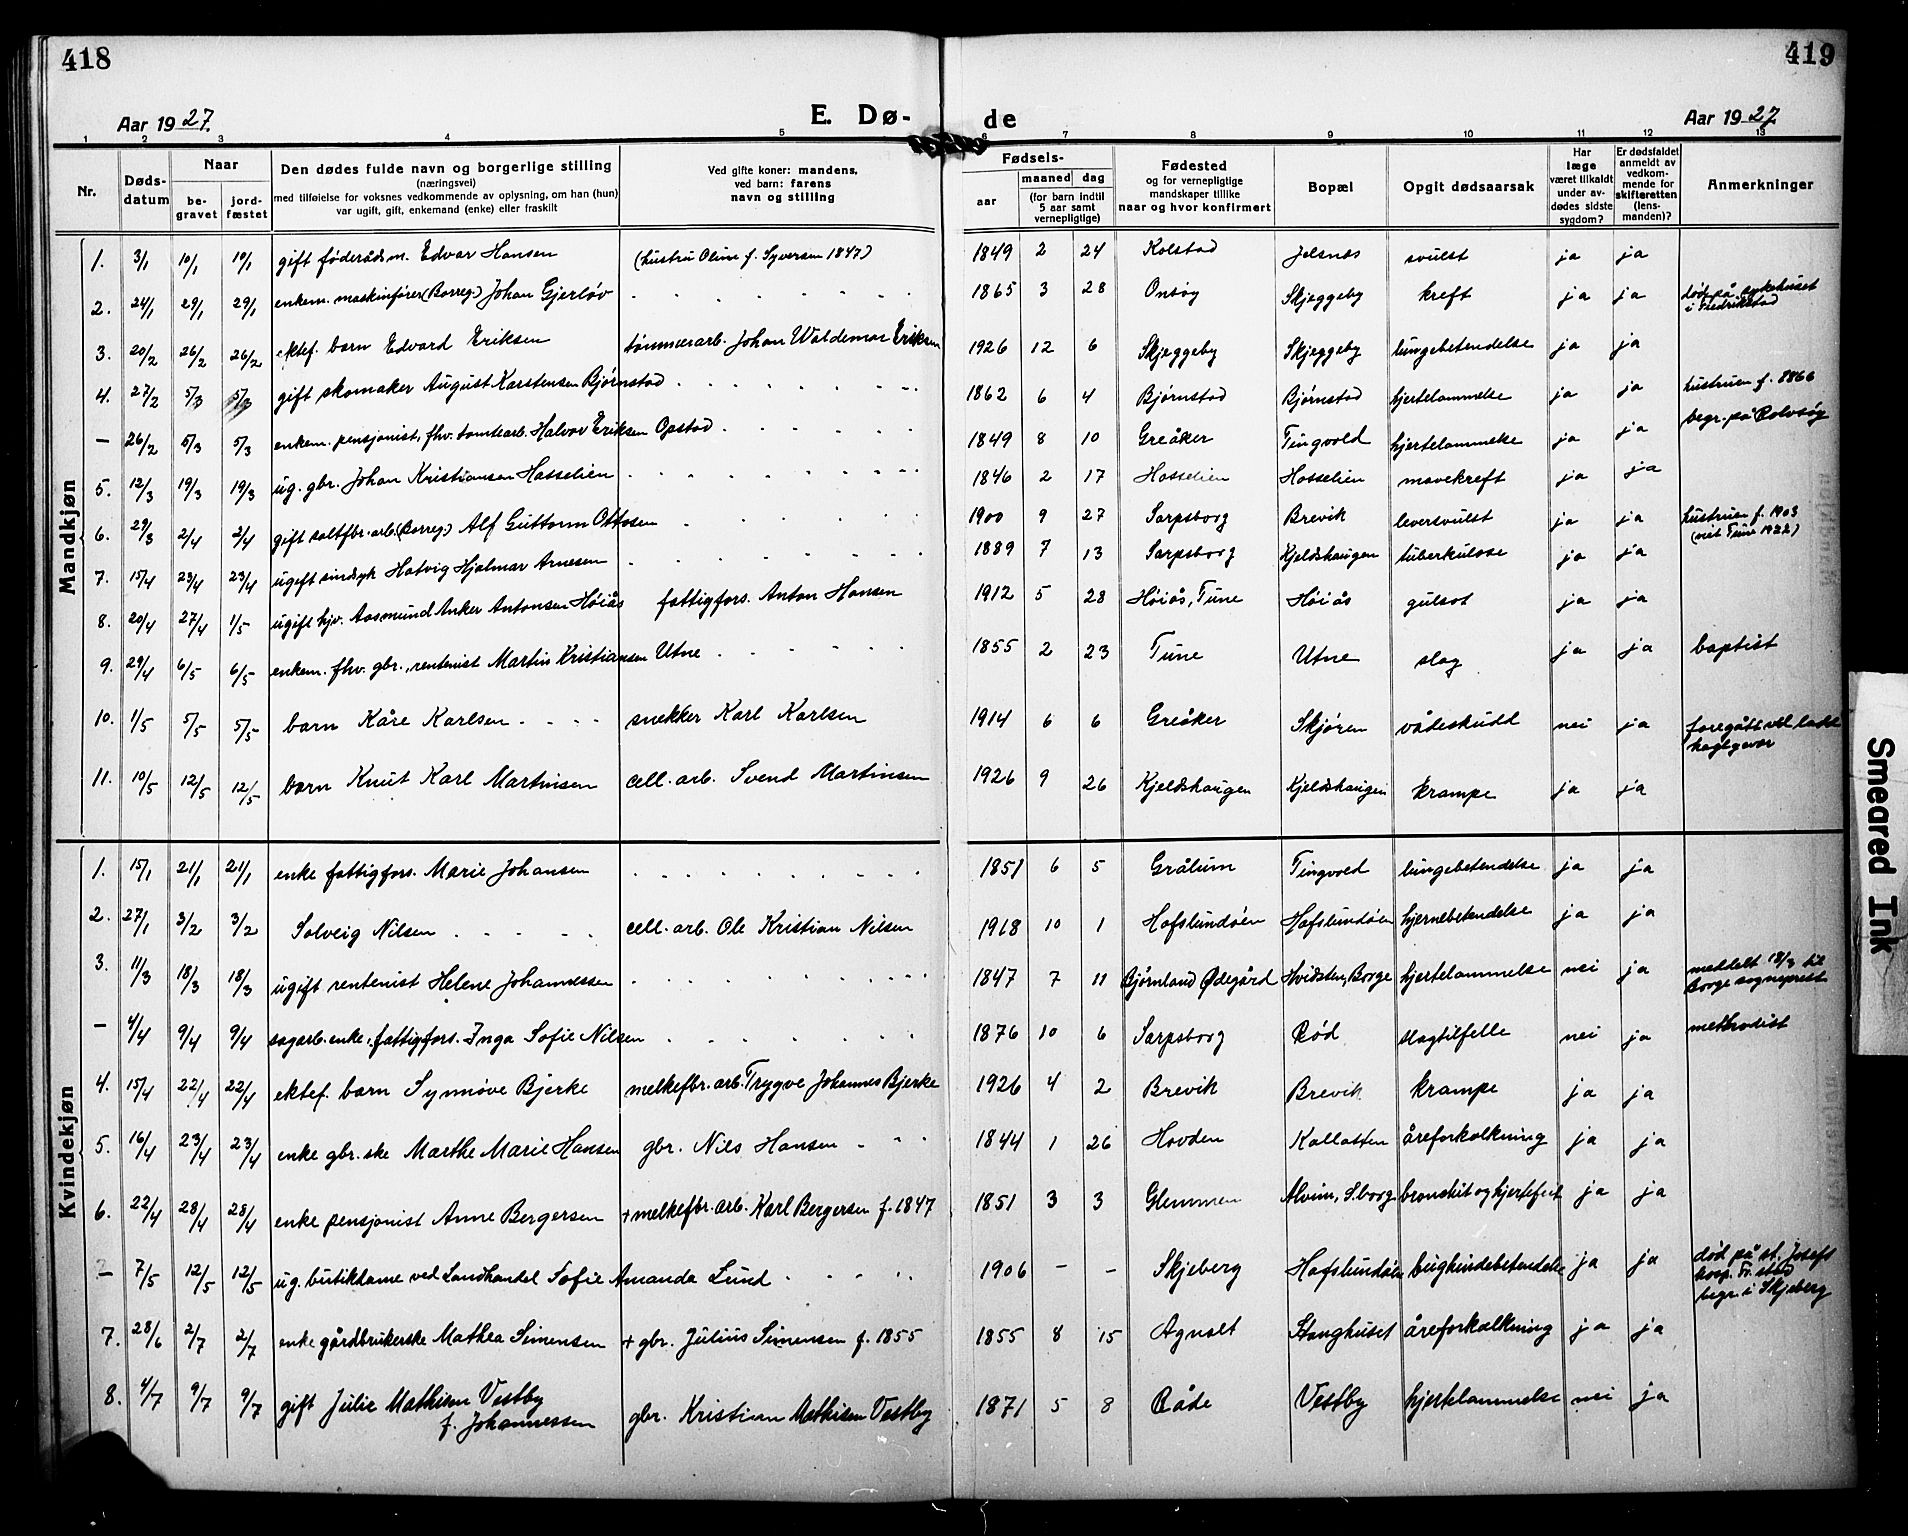 418
419
Aar 1927.
E. Dø-
de
Aar 1927
1 2 3 4 5 6 7 8 9 10 11 12 13
Nr. | Dødsdatum | Naar begravet | jordfæstet | Den dødes fulde navn og borgerlige stilling (næringsvei) med tilføielse for voksnes vedkommende av oplysning, om han (hun) var ugift, gift, enkemand (enke) eller fraskilt | Ved gifte koner: mandens, ved barn: farens navn og stilling | Fødsels- aar | maaned | dag (for barn indtil 5 aar samt vernepligtige) | Fødested og for vernepligtige mandskaper tillike naar og hvor konfirmert | Bopæl | Opgit dødsaarsak | Har læge været tilkaldt under avdødes sidste sygdom? | Er dødsfaldet anmeldt av vedkommende for skifteretten (lensmanden)? | Anmerkninger
Mandkjøn
1. 3/1 10/1 10/1 gift føderådsm. Edvar Hansen (hustru Oline f. Syversen 1847) 1849 2 24 Kolstad Jelsnes svulst ja ja
2. 24/1 29/1 29/1 enkem. maskinfører (Borreg.) Johan Gjerløv 1865 3 28 Onsøy Skjeggeby kreft ja ja død på sykehuset i Fredrikstad
3. 20/2 26/2 26/2 ektef. barn Edvard Eriksen tømmerarb. Johan Waldemar Eriksen 1926 12 6 Skjeggeby Skjeggeby lungebetendelse ja ja
4. 27/2 5/3 5/3 gift skomaker August Karstensen Bjørnstad 1862 6 4 Bjørnstad Bjørnstad hjertelammelse ja ja hustruen f. 1866
– 26/2 5/3 5/3 enkem. pensjonist, fhv. tomtearb. Halvor Eriksen Opstad 1849 8 10 Greåker Tingvold hjertelammelse ja ja begr. på Rolvsøy
5. 12/3 19/3 19/3 ug. gbr. Johan Kristiansen Hasselien 1846 2 17 Hasselien Hasselien mavekreft ja ja
6. 29/3 2/4 2/4 gift saltfbr. arb. (Borreg.) Alf Guttorm Ottosen 1900 9 27 Sarpsborg Brevik leversvulst ja ja hustruen f. 1903 (viet Tune 1922)
7. 15/4 23/4 23/4 ugift sindsyk Hatvig Hjalmar Arnesen 1889 7 13 Sarpsborg Kjeldshaugen tuberkulose ja ja
8. 20/4 27/4 1/5 ugift hjv. Aasmund Anker Antonsen Høiås fattigfors. Anton Hansen 1912 5 28 Høiås, Tune Høiås gulsot ja ja
9. 29/4 6/5 6/5 enkem. fhv. gbr., rentenist Martin Kristiansen Utne 1855 2 23 Tune Utne slag ja ja baptist
10. 1/5 5/5 5/5 barn Kåre Karlsen snekker Karl Karlsen 1914 6 6 Greåker Skjøren vådeskudd nei ja foregått ved ladd haglgevær
11. 10/5 12/5 12/5 barn Knut Karl Martinsen cell. arb. Svend Martinsen 1926 9 26 Kjeldshaugen Kjeldshaugen krampe ja ja
Kvindekjøn
1. 15/1 21/1 21/1 enke fattigfors. Marie Johansen 1851 6 5 Grålum Tingvold lungebetendelse ja ja
2. 27/1 3/2 3/2 Solveig Nilsen cell. arb. Ole Kristian Nilsen 1918 10 1 Hafslundøen Hafslundøen hjernebetendelse ja ja
3. 11/3 18/3 18/3 ugift rentenist Helene Johannessen 1847 7 11 Bjørnland Ødegård Hvidsten, Borge hjertelammelse nei ja meddelt 18/3 til Borge sogneprest
– 4/4 9/4 9/4 sagarb. enke, fattigfors. Inga Sofie Nilsen 1876 10 6 Sarpsborg Rød slagtilfelle nei ja methodist
4. 15/4 22/4 22/4 ektef. barn Synnøve Bjerke melkefbr. arb. Trygve Johannes Bjerke 1926 4 2 Brevik Brevik krampe ja ja
5. 16/4 23/4 23/4 enke gbr.ske Marthe Marie Hansen gbr. Nils Hansen 1844 1 26 Hovden Kallasten åreforkalkning ja ja
6. 22/4 28/4 28/4 enke pensjonist Anne Bergersen + melkefbr. arb. Karl Bergersen f. 1847 1851 3 3 Glemmen Alvim, S.borg bronskit og hjertefeil ja ja
– 7/5 12/5 12/5 ug. butikdame ved Landhandel Sofie Amanda Lund 1906 – – Skjeberg Hafslundøen bughindebetendelse ja ja død på st. Josefs hosp. Fr.stad begr. i Skjeberg
7. 28/6 2/7 2/7 enke gårdbrukerske Mathea Simensen + gbr. Julius Simensen f. 1855 1855 8 15 Agnalt Stanghuset åreforkalkning ja ja
8. 4/7 9/7 9/7 gift Julie Mathisen Vestby f. Johannessen gbr. Kristian Mathisen Vestby 1871 5 8 Råde Vestby hjertelammelse nei ja
Smeared Ink